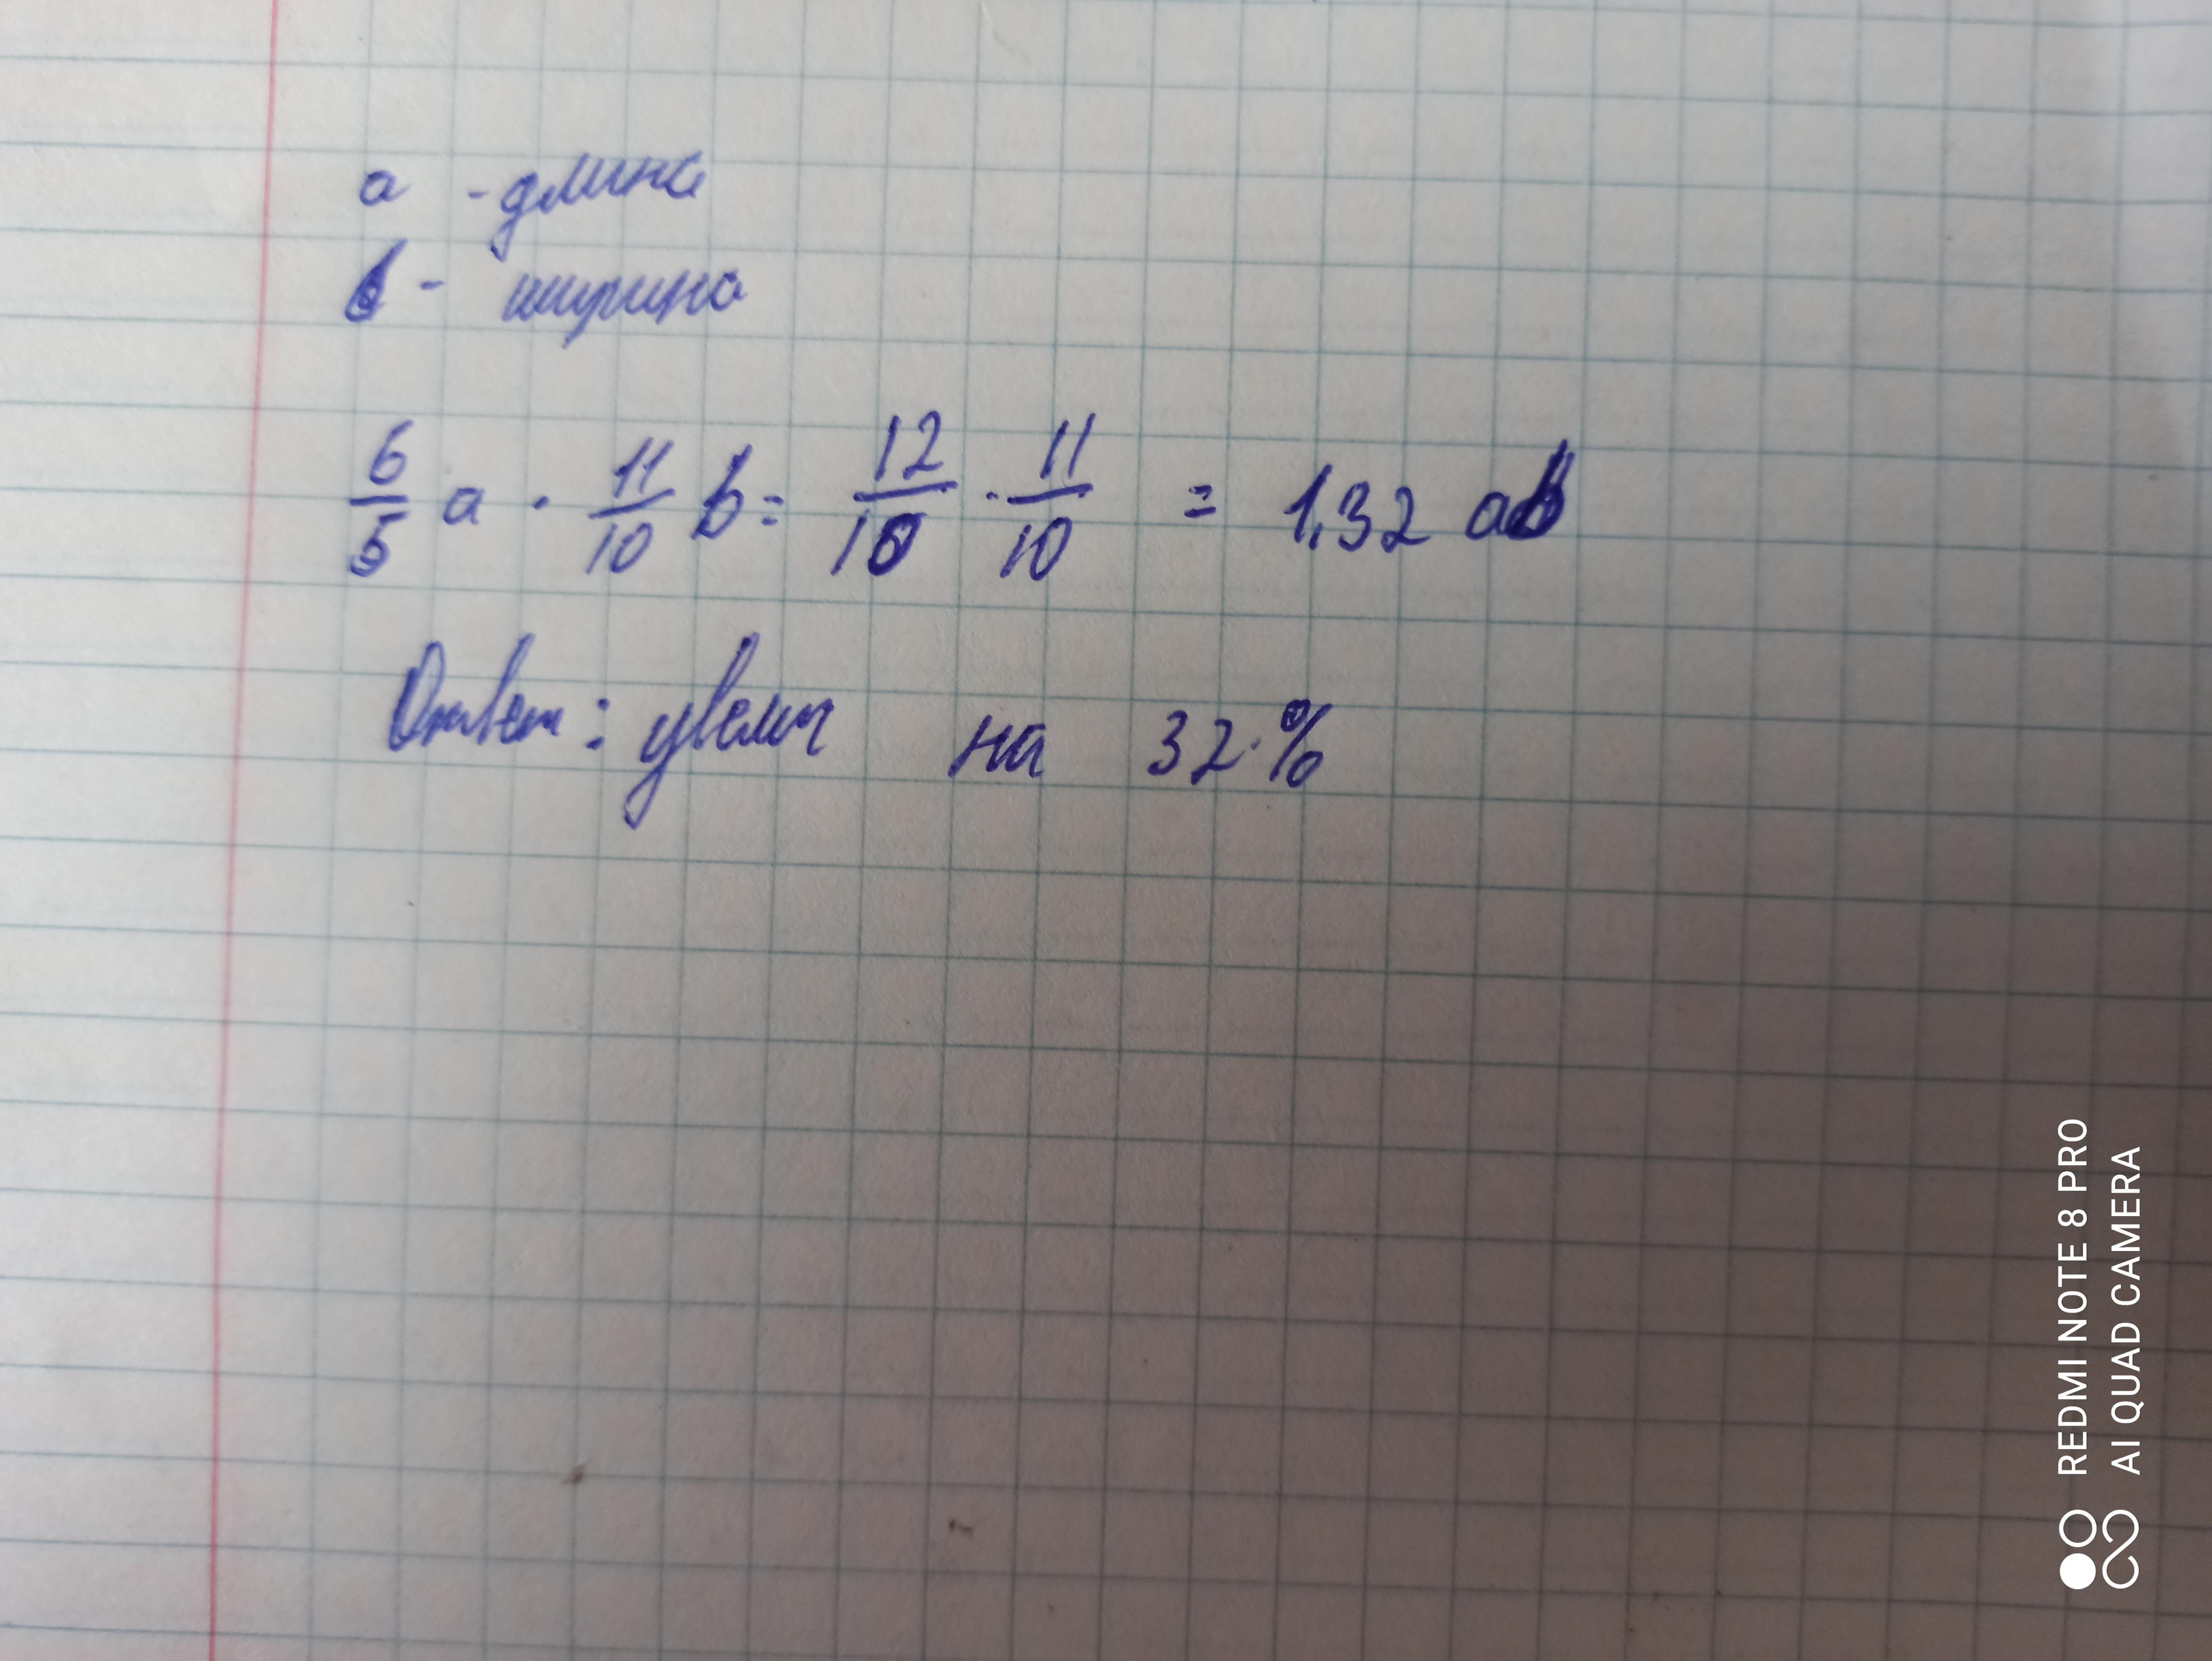 a - длина
b - ширина
6/5 a · 11/10 b = 12/10 · 11/10 = 1,32 ab
Ответ: увелич на 32%
REDMI NOTE 8 PRO
AI QUAD CAMERA